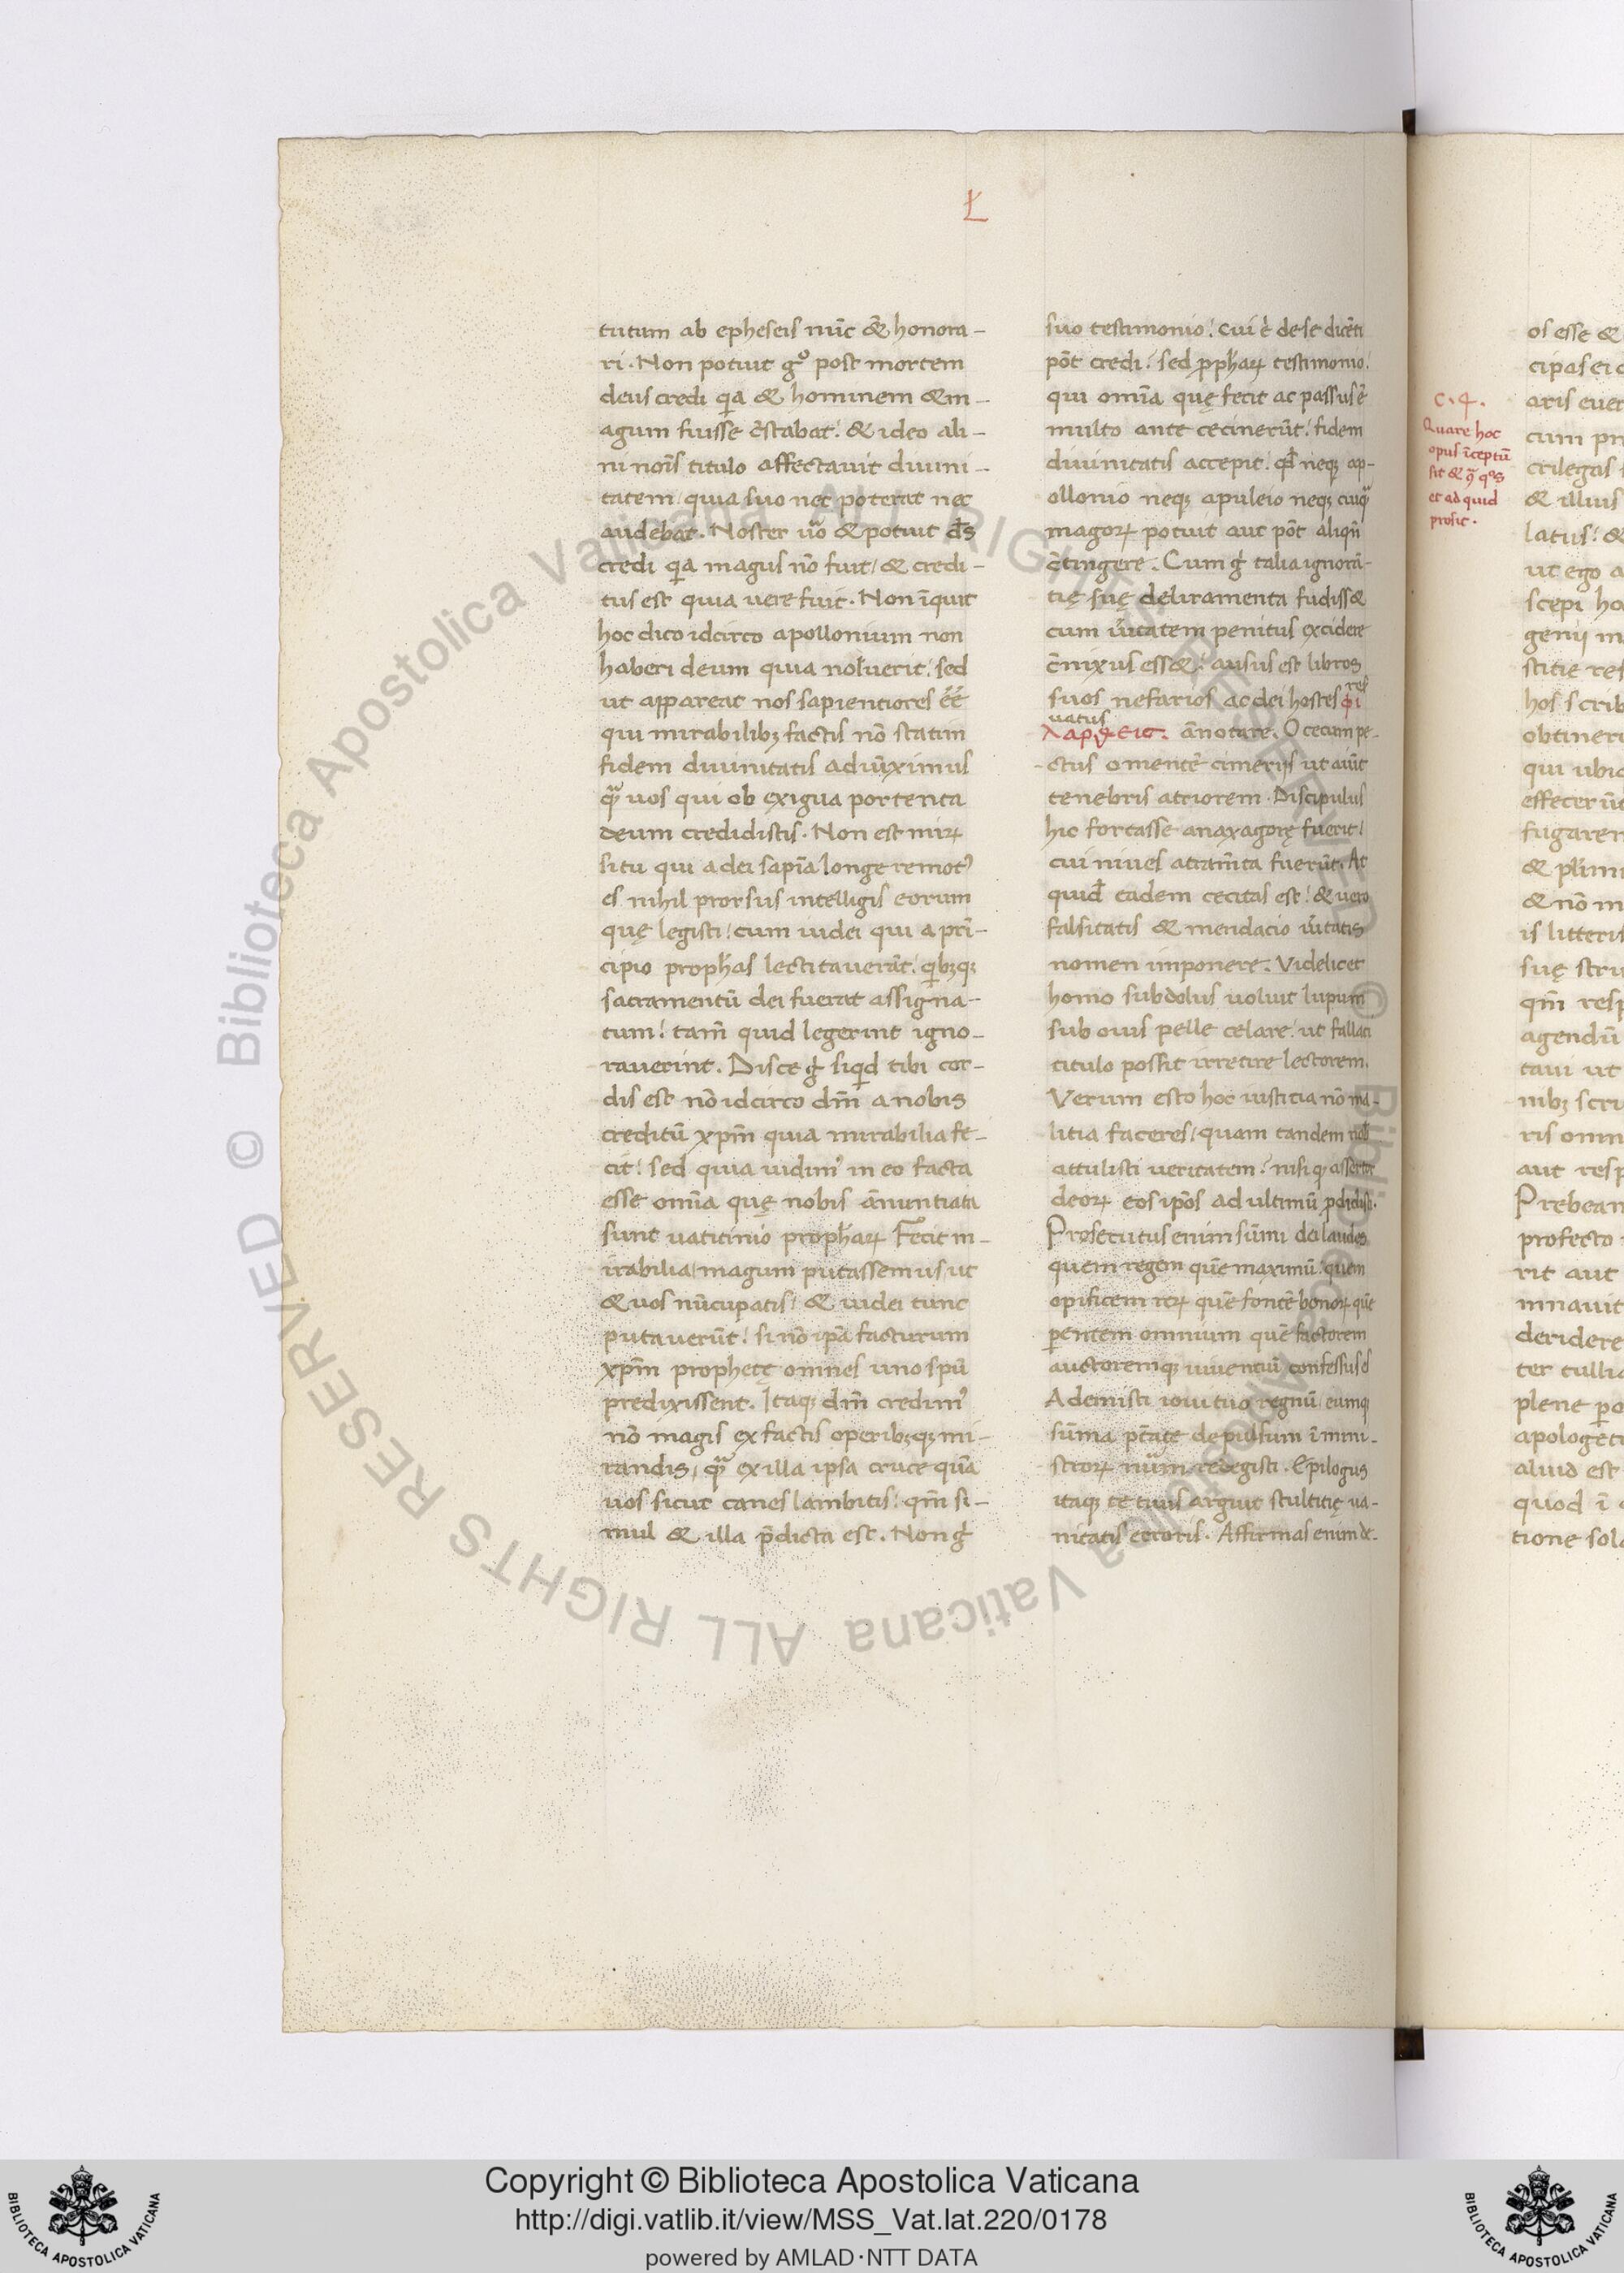 Ł
tutum ab epheseis nūc & honora-
ri. Non potuit gº post mortem
deus credi qa & hominem & m-
agum fuisse c̄stabat. & ideo ali-
ni noīs titulo affectavit divini-
tatem quia suo nec poterat nec
audebat. Noster uo & potuit ds
credi qa magus nō fuit & credi-
tus est quia vere fuit. Non īquit
hoc dico idcirco apollonium non
haberi deum quia noluerit. sed
ut appareat nos sapientiores ēē
qui mirabilibꝫ factis nō statim
fidem divinitatis adiūximus
quā uos qui ob exigua portenta
deum credidistis. Non est mirꝝ
si tu qui a dei sapīa longe remotꝰ
es nihil prorsus intelligis eorum
quę legisti. cum iudei qui a prī-
cipio prophas lectitaverāt. qbꝫqꝫ
sacramentū dei fuerat assigna-
tum. tam̄ quid legerint igno-
raverint. Disce g siqd tibi cor-
dis est nō idcirco dm̄ a nobis
creditū xpm̄ quia mirabilia fe-
cit. sed quia vidimꝰ in eo facta
esse omīa quę nobis ānuntiata
sunt vaticinio prophaꝝ Fecit m-
irabilia magum putassemus ut
& uos nūcupatis & iudei tunc
putaverūt. si nō ipā facturum
xpm̄ prophetę omnes uno spū
predixissent. Itaqꝫ dm̄ credimꝰ
nō magis ex factis operibꝫqꝫ mi-
randis, quā ex illa ipsa cruce quā
uos sicut canes lambitis. qm̄ si-
mul & illa p̄dicta est. Non g
suo testimonio. cui ē de se dicēti
pōt credi. sed pphaꝝ testimonio.
qui omīa quę fecit ac passus ē
multo ante cecinerūt. fidem
divinitatis accepit. qd neqꝫ ap-
ollonio neqꝫ apuleio neqꝫ cuiquā
magoꝝ potuit aut pōt aliqn̄
c̄tingere. Cum g talia ignorā-
tię suę deliramenta fudiss&
cum ūitatem penitus excidere
c̄nixus ess&. ausus est libros
suos nefarios ac dei hostes φι
λαρηθεις. ānotare. O cecum pe-
ctus o mentē cimeriis ut aiūt
tenebris atriorem. Discipulus
hic fortasse anaxagorę fuerit.
cui nives atram̄ta fuerūt. At
quid eadem cecitas est. & vero
falsitatis & mendacio ūitatis
nomen imponere. Videlicet
homo subdolus voluit lupum
sub ovis pelle celare. ut fallaci
titulo possit irretire lectorem.
Verum esto hoc iusticia nō ma-
litia faceres, quam tandem nob
attulisti veritatem. nisi q assertor
deoꝝ eos ipōs ad ultimū pdidisti.
Prosecutus enim sūmi dei laudes
quem regem quē maximū. quem
opificem reꝝ quē fontē bonoꝝ quē
pentem omnium quē factorem
auctoremqꝫ viventiū confessus es
Ademisti iovi tuo regnū, eumqꝫ
sūma p̄tate depulsum ī mini-
stroꝝ num redegisti. Epilogus
itaqꝫ te tuus arguit stultitię va-
nitatis erroris. Affirmas enim de-
c. 4.
Quare hoc
opus īceptū
sit & q qos
et ad quid
prosit.
os esse &
cipas ei
aris ever
cum pr
crilegas
& illius
latus. &
ut ego a
scepi ho
genii m
stitie res
hos scrib
obtineri
qui ubi
effecerūt
fugaren
& plim
& nō m
is litteris
suę scri
qm̄ resp
agendū
tavi ut
nibꝫ scri
ris omn
aut resp
Prebean
profecto
rit aut
mnavit
deridere
ter tullia
plene po
apologeti
aliud est
quod ī
tione sola
© Biblioteca Apostolica Vaticana ALL RIGHTS RESERVED © Biblioteca Apostolica Vaticana ALL RIGHTS RESERVED
Copyright © Biblioteca Apostolica Vaticana
http://digi.vatlib.it/view/MSS_Vat.lat.220/0178
powered by AMLAD·NTT DATA
BIBLIOTECA APOSTOLICA VATICANA
BIBLIOTECA APOSTOLICA VATICANA